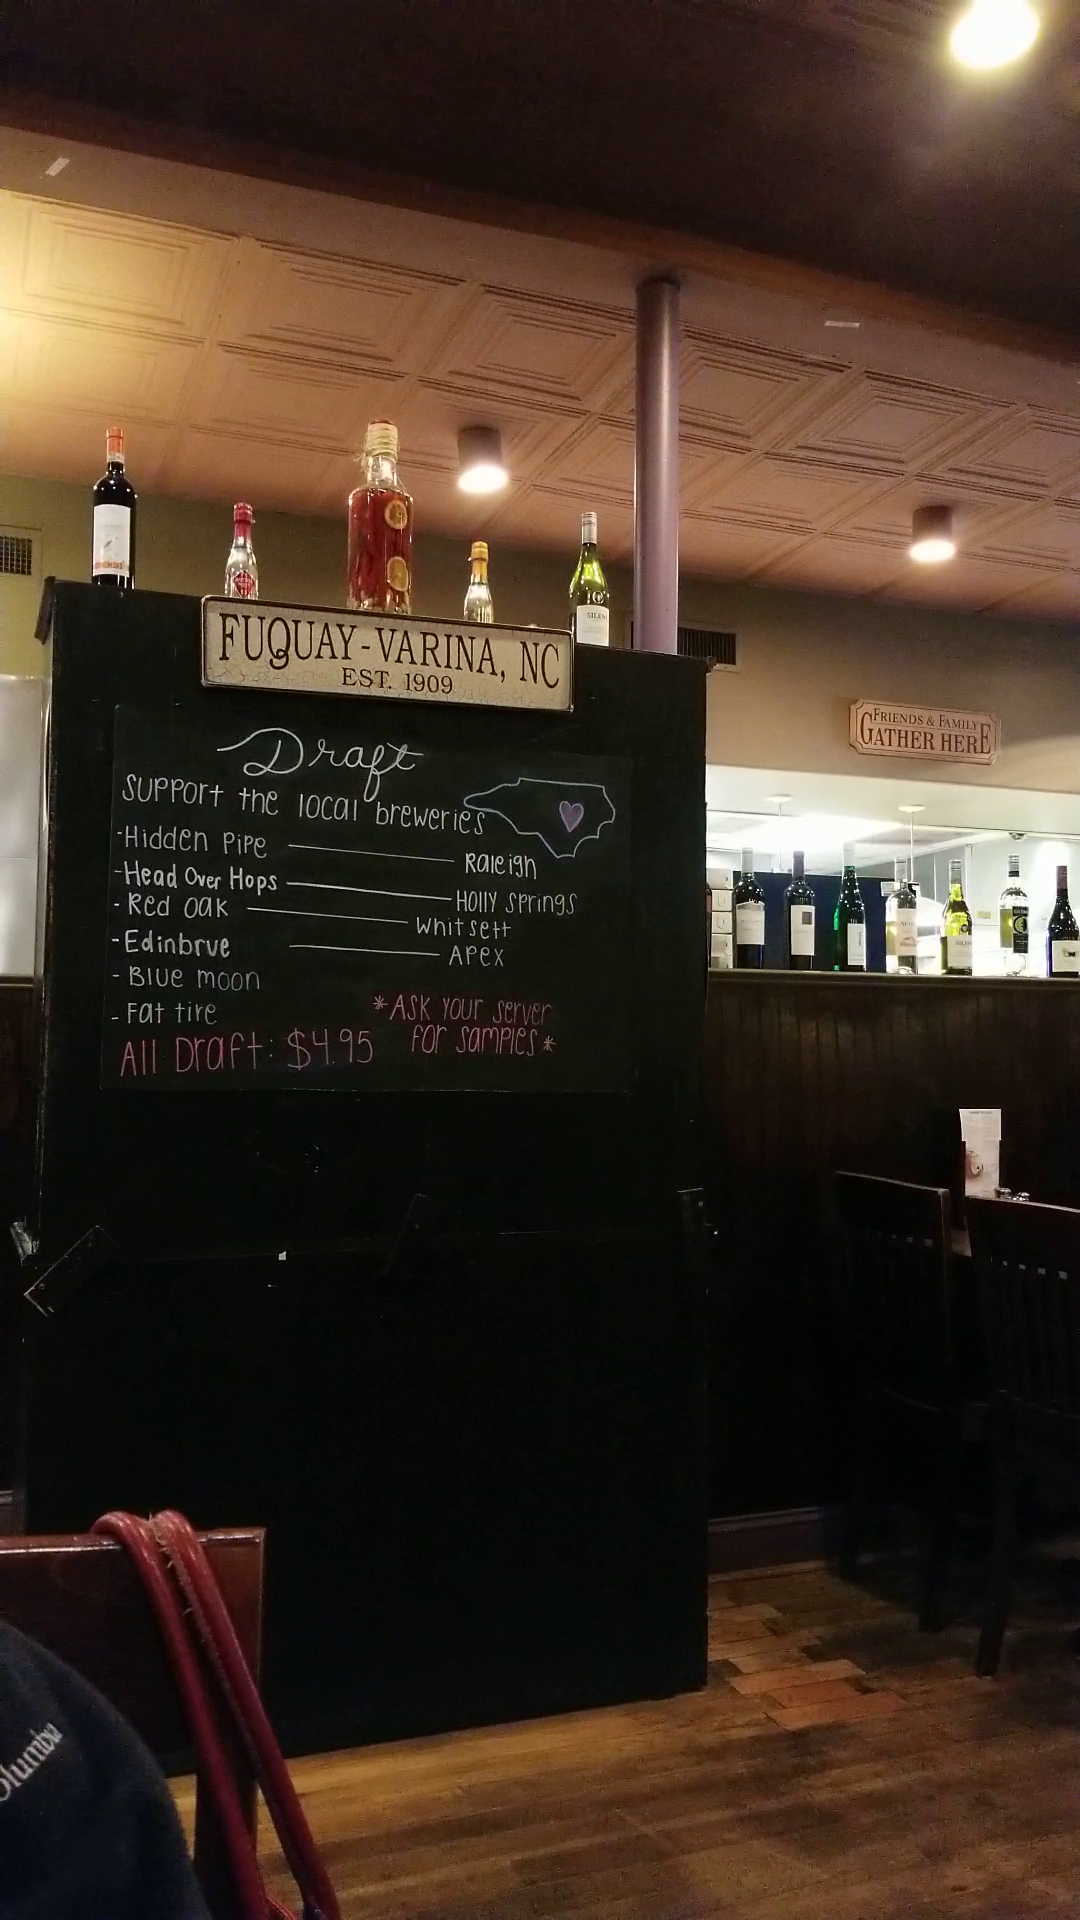 FUQUAY-VARINA, NC
EST. 1909
Draft
Support the local breweries
-Hidden Pipe Raleigh
-Head Over Hops Holly Springs
- Red Oak Whitsett
-Edinbrue Apex
- Blue moon
- Fat tire
*Ask your server
for samples*
All Draft: $4.95
FRIENDS & FAMILY
GATHER HERE
SILEN
SILEN
olumbia